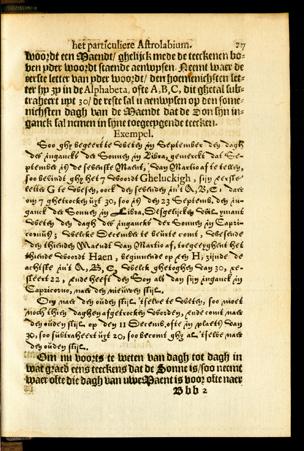 het particuliere Astrolabium.
woordt een Maendt/ ghelijck mede de teeckenen bo-
ven yder woordt staende aenwysen. Neemt waer de
eerste letter van yder woordt/ den hoeveelichsten let-
ter hy zy in de Alphabeta, ofte A, B, C, dit ghetal sub-
traheert uyt 30/ de reste sal u aenwysen op den hoe-
nichsten dagh van de Maendt dat de Son syn in-
ganck sal nemen in syne toegeeygende teecken.
Exempel.
Soo ghy begeert te weten in September den dagh
des inganckx der Sonnen in Libra, gemerckt dat Sep-
tember is de sevenste Maent, van Martio af te tellen,
soo bevindt ghy het 7 woordt Gheluckigh, sijn eerste
letter G te wesen, oock de sevende in 't A, B, C, daer
om 7 ghetrocken uyt 30, soo is den 23 Septemb. den in-
ganck des Sonnen in Libra. Desgelijcx wilt ymant
weten den dagh des inganckx der Sonnen in Capri-
cornus,
den thienden Maendt van Martio af, toegeeyghent het
thiende woordt Haen, beginnende op een H, zijnde de
achtste in 't A, B, C, welck ghetoghen van 30, re-
steert 22, ende heeft den Son als dan sijn inganck in
Capricorno, naer den nieuwen stijl.
Om naer den ouden stijl 't selve te weten, soo moet
noch thien daghen afgetrocken worden, ende comt naer
den ouden stijl op den 11 Decemb. ofte in plaets van
30, soo subtraheert uyt 20, soo becomt ghy al 't selve naer
den ouden stijl.
Om nu voorts te weten van dagh tot dagh in
wat graed eens teeckens dat de Sonne is/ soo neemt
waer ofte die dagh van uwe Maent is voor ofte naer
B b b 2